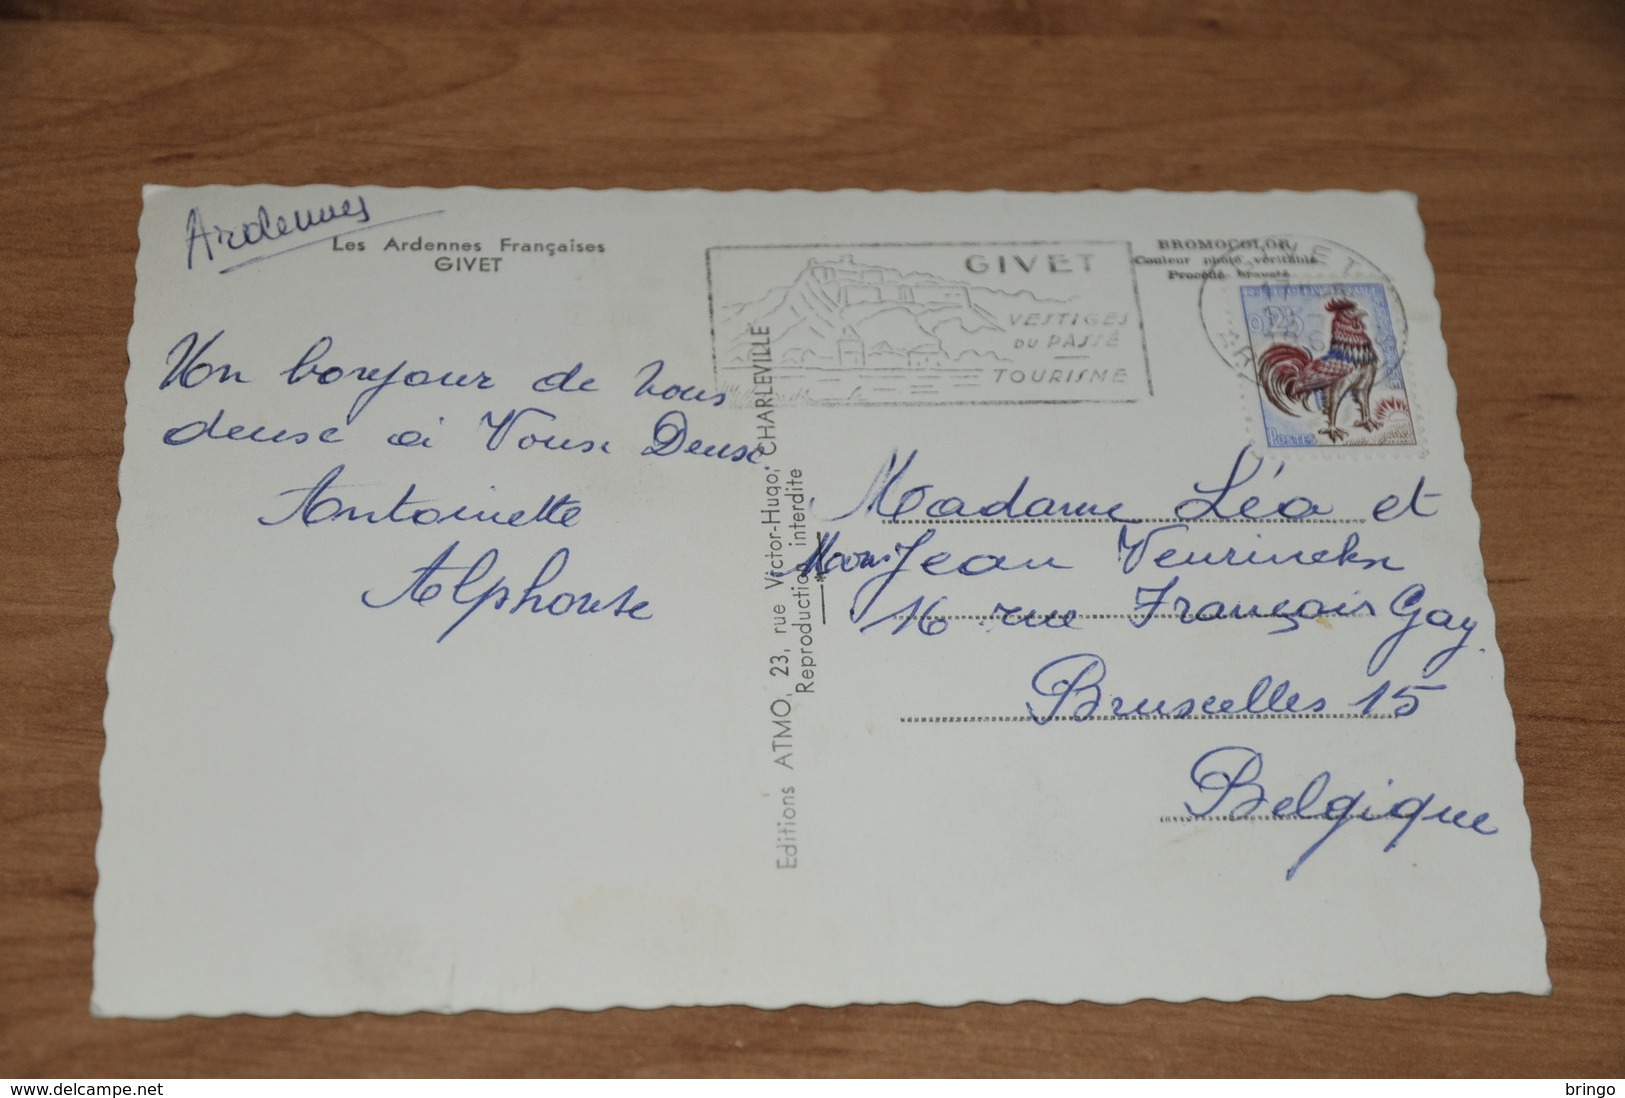 Ardennes
Les Ardennes Françaises
GIVET
Un bonjour de nous
deuse a Vouse Deuse
Antoinette
Alphonse
Editions ATMO, 23, rue Victor-Hugo, CHARLEVILLE
Reproduction interdite
GIVET
VESTIGES
DU PASSÉ
TOURISME
BROMOCOLOR
Couleur photo véritable
Procédé breveté
0,25
POSTES
Madame Léa et
Jean Veurinckx
16 rue François Gay
Bruxelles 15
Belgique
delcampe.net
bringo